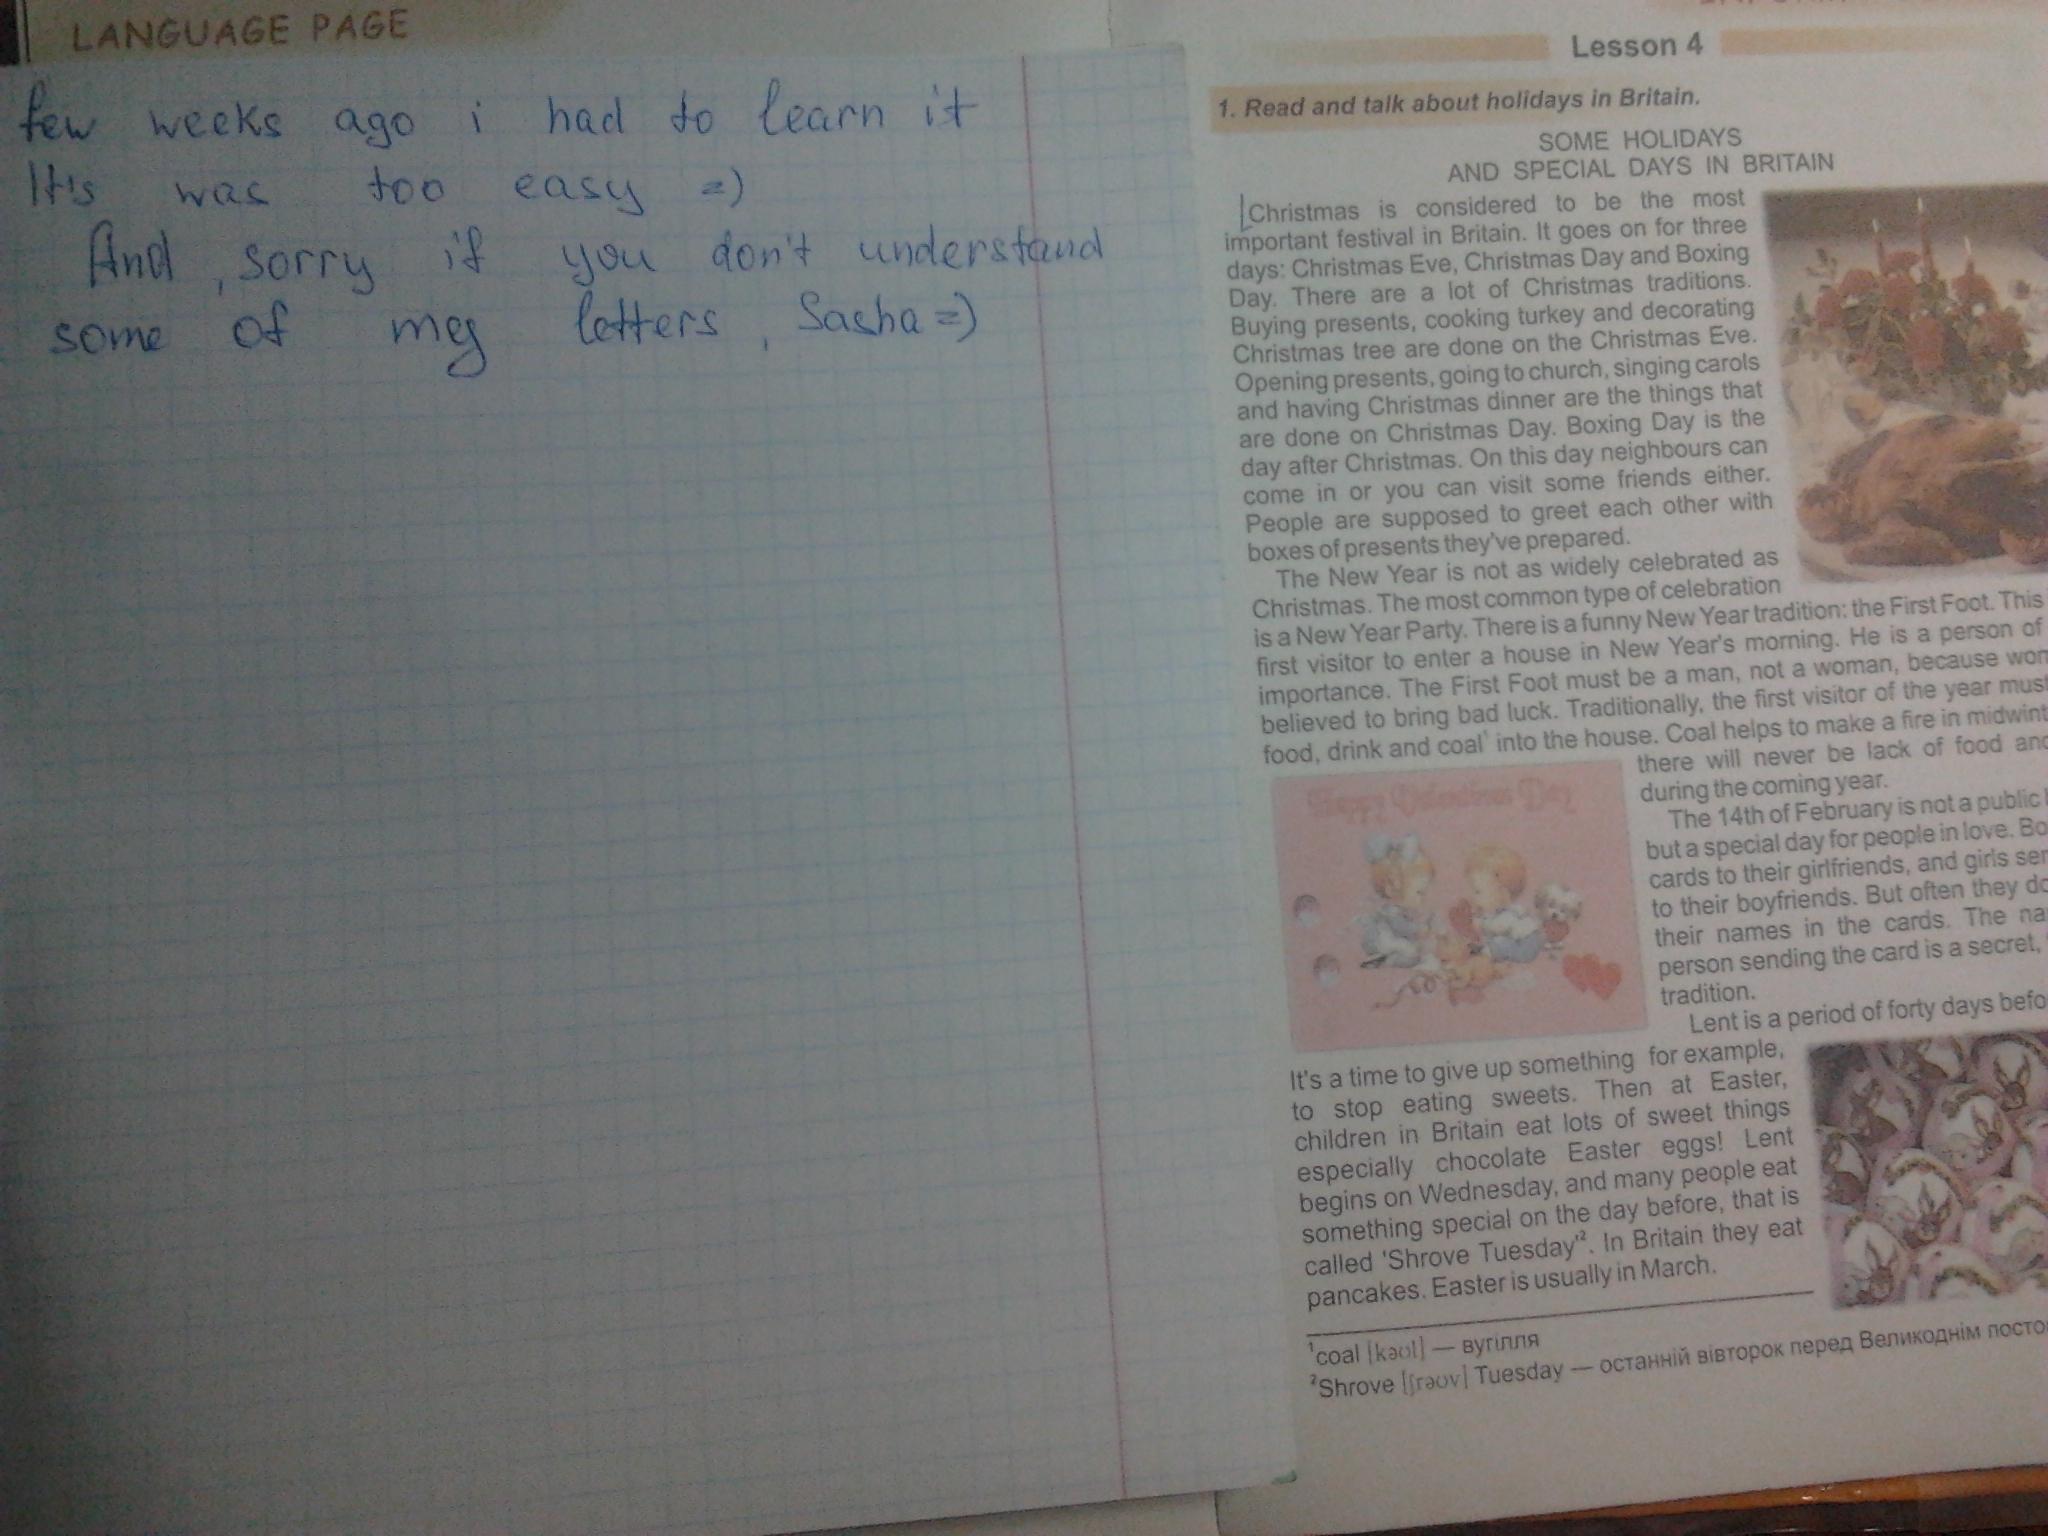 LANGUAGE PAGE
few weeks ago i had to learn it
It's was too easy =)
And , sorry if you don't understand
some of my letters , Sasha =)
Lesson 4
1. Read and talk about holidays in Britain.
SOME HOLIDAYS
AND SPECIAL DAYS IN BRITAIN
Christmas is considered to be the most
important festival in Britain. It goes on for three
days: Christmas Eve, Christmas Day and Boxing
Day. There are a lot of Christmas traditions.
Buying presents, cooking turkey and decorating
Christmas tree are done on the Christmas Eve.
Opening presents, going to church, singing carols
and having Christmas dinner are the things that
are done on Christmas Day. Boxing Day is the
day after Christmas. On this day neighbours can
come in or you can visit some friends either.
People are supposed to greet each other with
boxes of presents they've prepared.
The New Year is not as widely celebrated as
Christmas. The most common type of celebration
is a New Year Party. There is a funny New Year tradition: the First Foot. This
first visitor to enter a house in New Year's morning. He is a person of
importance. The First Foot must be a man, not a woman, because wom
believed to bring bad luck. Traditionally, the first visitor of the year must
food, drink and coal¹ into the house. Coal helps to make a fire in midwint
there will never be lack of food and
during the coming year.
The 14th of February is not a public
but a special day for people in love. Bo
cards to their girlfriends, and girls sen
to their boyfriends. But often they do
their names in the cards. The na
person sending the card is a secret,
tradition.
Happy Valentines Day
Lent is a period of forty days befo
It's a time to give up something for example,
to stop eating sweets. Then at Easter,
children in Britain eat lots of sweet things
especially chocolate Easter eggs! Lent
begins on Wednesday, and many people eat
something special on the day before, that is
called 'Shrove Tuesday'². In Britain they eat
pancakes. Easter is usually in March.
¹coal [kəʊl] — вугілля
²Shrove [ʃrəʊv] Tuesday — останній вівторок перед Великоднім посто